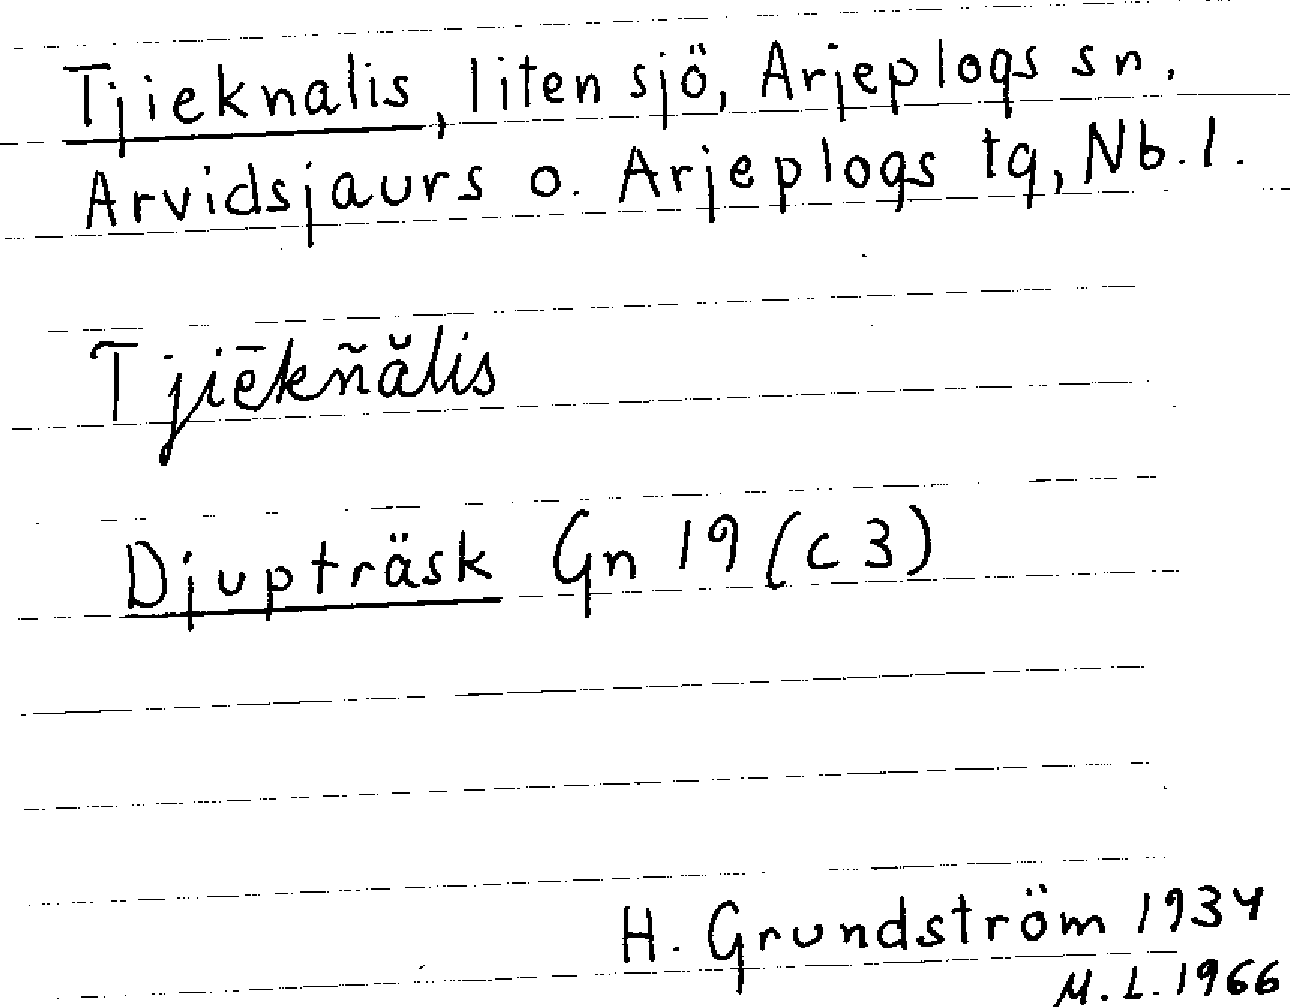 Tjieknalis, liten sjö, Arjeplogs sn.
Arvidsjaurs o. Arjeplogs tg, Nb. l.
Tjiēkñălis
Djupträsk Gn 19 (c 3)
H. Grundström 1934
M. L. 1966